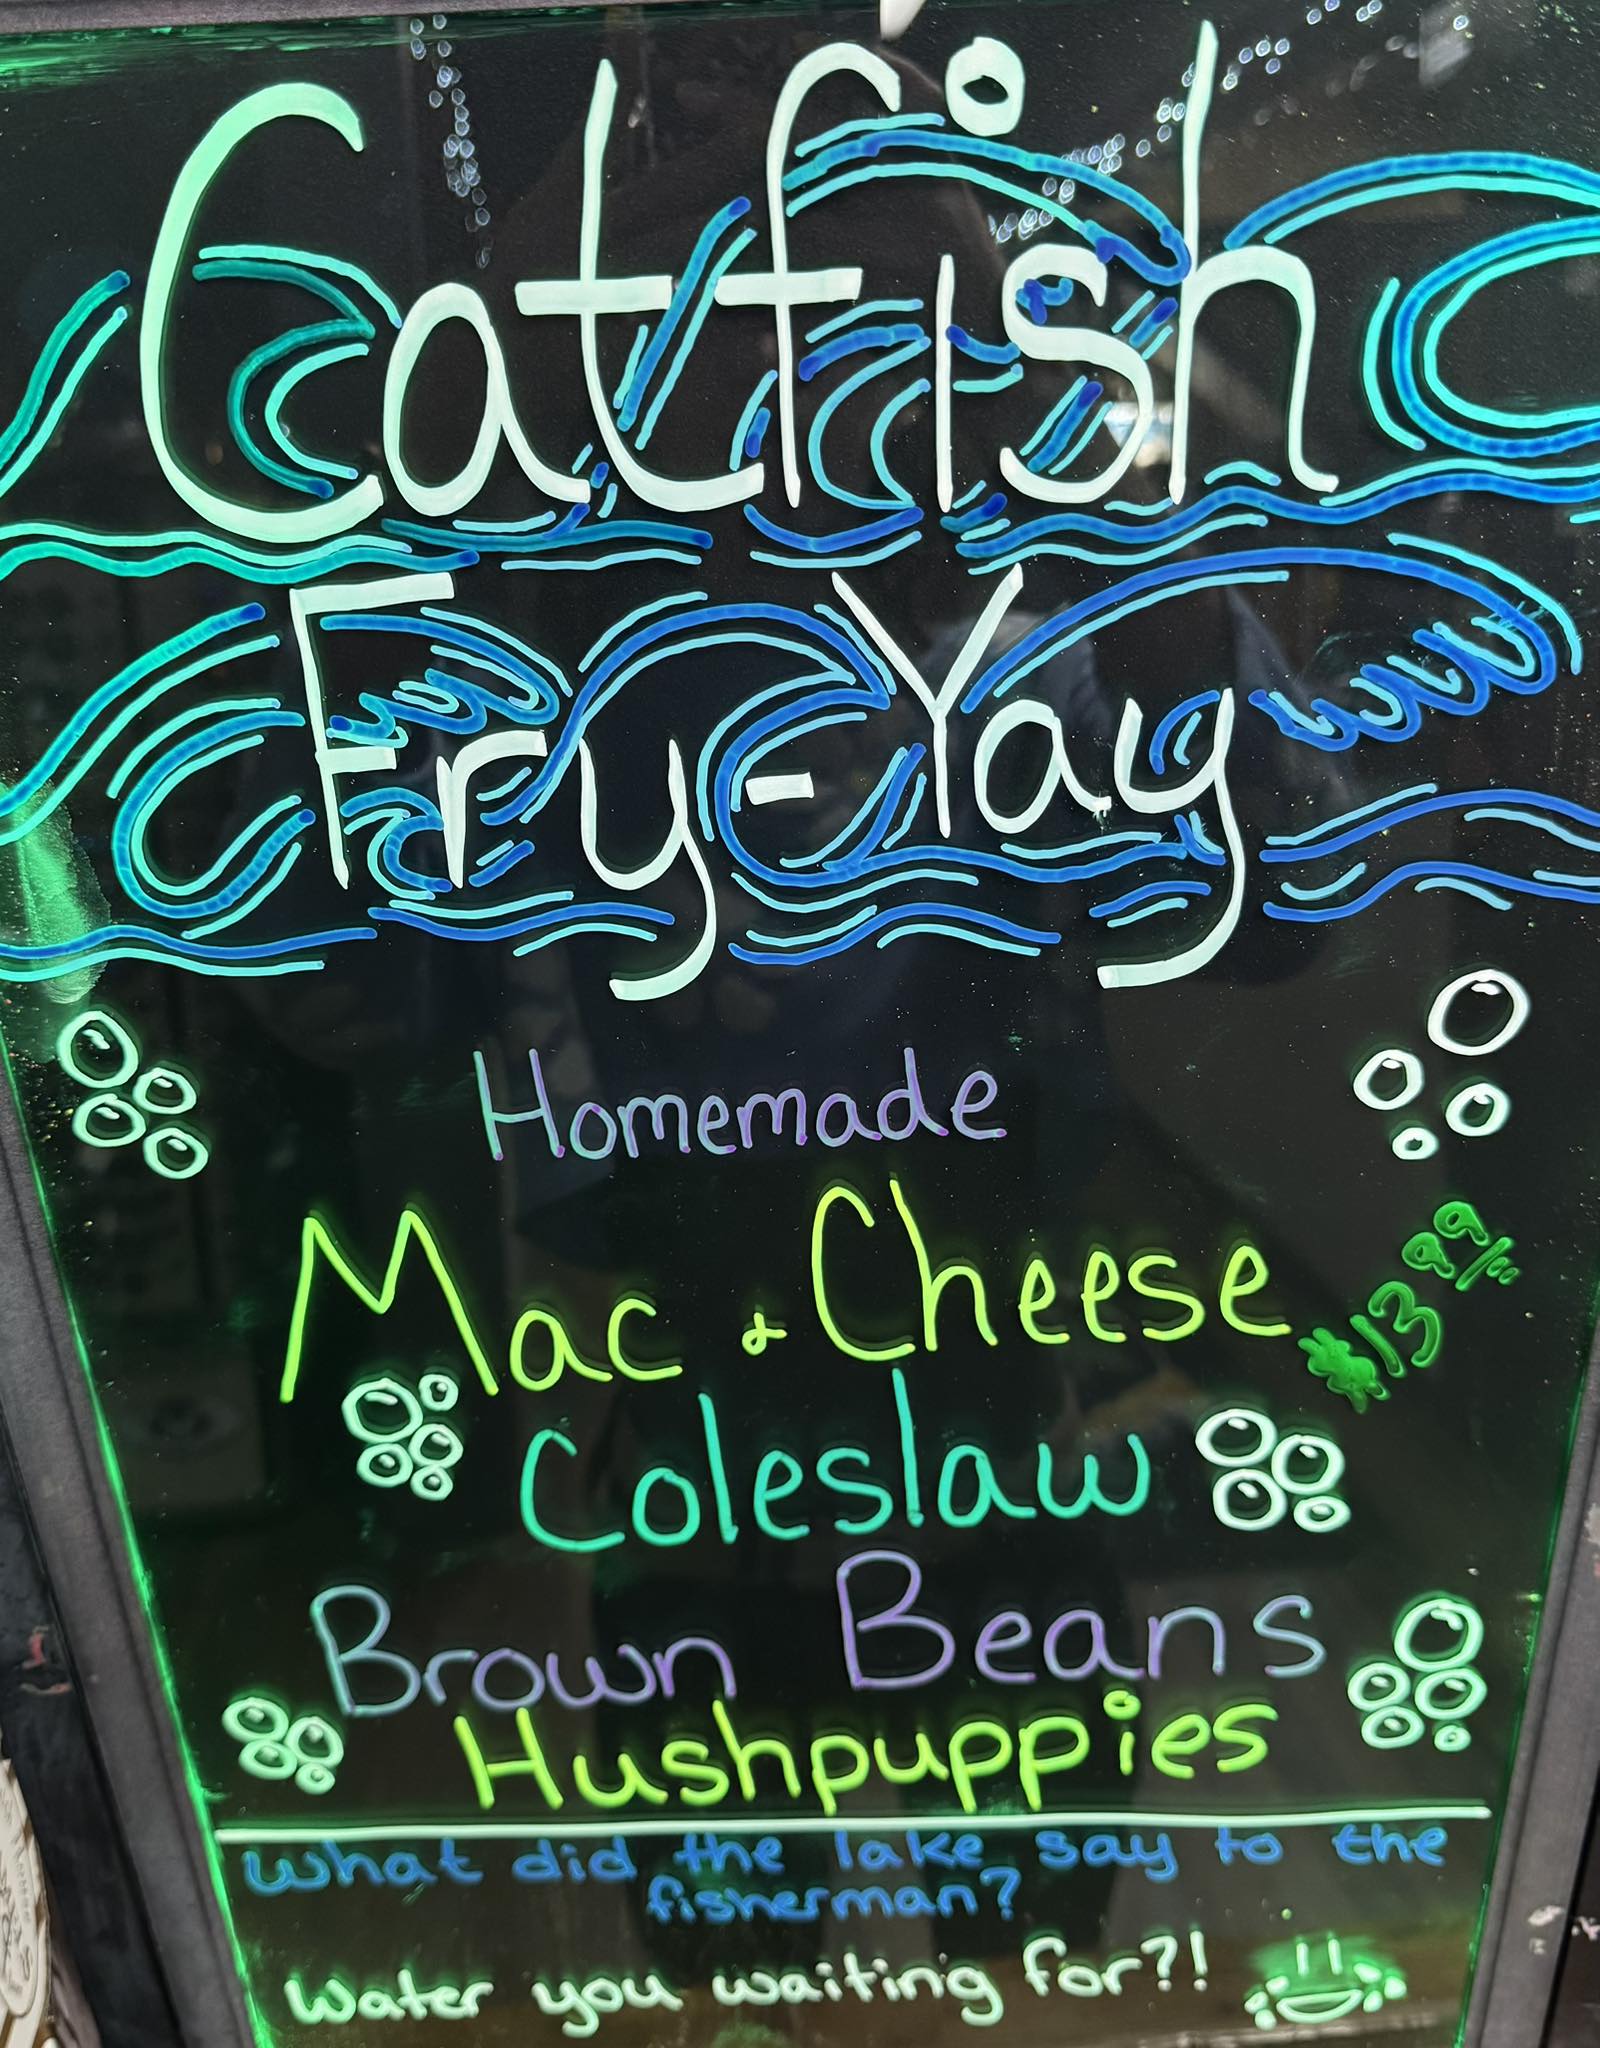 Catfish
Fry-Yay
Homemade
Mac & Cheese
$13.99/
Coleslaw
Brown Beans
Hushpuppies
What did the lake say to the
fisherman?
Water you waiting for?!